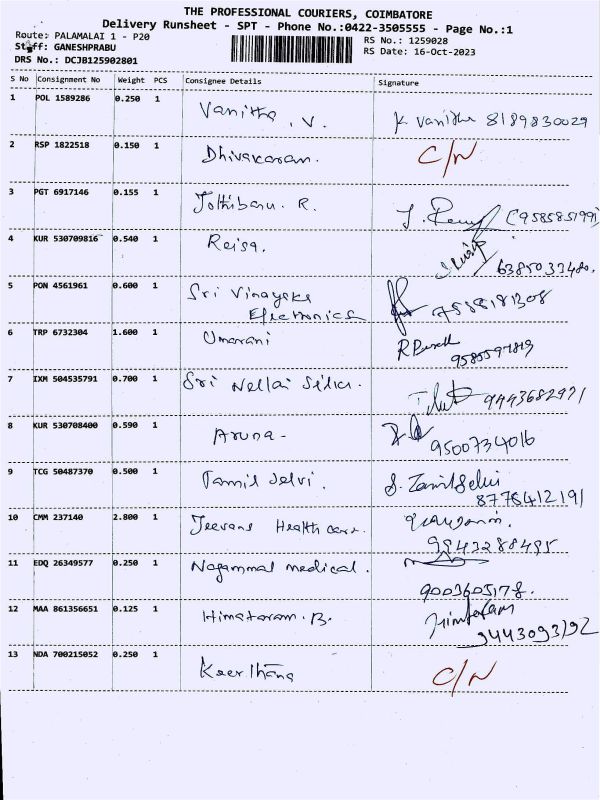 THE PROFESSIONAL COURIERS, COIMBATORE
Delivery Runsheet - SPT - Phone No.:0422-3505555 - Page No.:1
Route: PALAMALAI 1 - P20
RS No.: 1259028
Staff: GANESHPRABU
RS Date: 16-Oct-2023
DRS No.: DCJB125902801
S No Consignment No Weight PCS Consignee Details Signature
1 POL 1589286 0.250 1 Vanitha . V. K Vanitha 8189830029
2 RSP 1822518 0.150 1 Dhivakaran. C/N
3 PGT 6917146 0.155 1 Jothibanu. R.
4 KUR 530709816 0.540 1 Reisa.
6385033480.
5 PON 4561961 0.600 1 Sri Vinayaka
Electronics 7558181308
6 TRP 6732304 1.600 1 Umarani
7 IXM 504535791 0.700 1 Sri Nellai Silks. 9443682971
8 KUR 530708400 0.590 1 Aruna -
9500734016
9 TCG 50487370 0.500 1 Tamil Selvi. S. TamilSelvi
8778412191
10 CMM 237140 2.800 1 Jeevans Health care.
9543288495
11 EDQ 26349577 0.250 1 Nagammal medical.
9003605178.
12 MAA 861356651 0.125 1 Himataram. B.
9443093192
13 NDA 700215052 0.250 1 Keerthana C/N